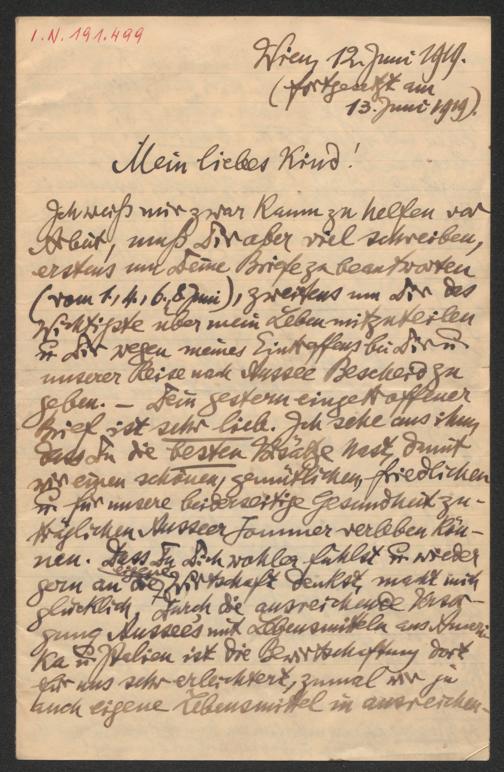 I.N. 191.499
Wien, 12. Juni 1919.
(fortgesetzt am
13. Juni 1919).
Mein liebes Kind!
Ich weiß mir zwar kaum zu helfen vor
Arbeit, muß Dir aber viel schreiben,
erstens um Deine Briefe zu beantworten
(vom 1., 4., 6., 8. Juni), zweitens um Dir das
Wichtigste über mein Leben mitzuteilen
u Dir wegen meines Eintreffens bei Dir u
unserer Reise nach Aussee Bescheid zu
geben. — Dein gestern eingetroffener
Brief ist sehr lieb. Ich sehe aus ihm,
dass Du die besten Vorsätze hast, damit
wir einen schönen, gemütlichen, friedlichen
u für unsere beiderseitige Gesundheit zu-
träglichen Ausseer Sommer verleben kön-
nen. Dass Du Dich wohler fühlst u wieder
gern an die eigene Wirtschaft denkst, macht mich
glücklich. Durch die ausreichende Versor-
gung Aussees mit Lebensmitteln aus Ameri-
ka u Italien ist die Bewirtschaftung dort
für uns sehr erleichtert, zumal wir ja
auch eigene Lebensmittel in ausreichen-